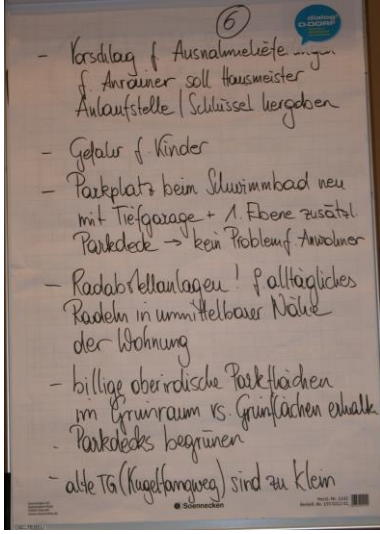 6
dialog
O-DORF
- Vorschlag f. Ausnahmeliefe ungen
f. Anrainer soll Hausmeister
Anlaufstelle / Schlüssel hergeben
- Gefahr f. Kinder
- Parkplatz beim Schwimmbad neu
mit Tiefgarage + 1. Ebene zusätzl.
Parkdeck → kein Problem f. Anwohner
- Radabstellanlagen! f. alltägliches
Radeln in unmittelbarer Nähe
der Wohnung
- billige oberirdische Parkflächen
im Grünraum vs. Grünflächen erhalt
- Parkdecks begrünen
- alte TG (Kugelfangweg) sind zu klein
Soennecken